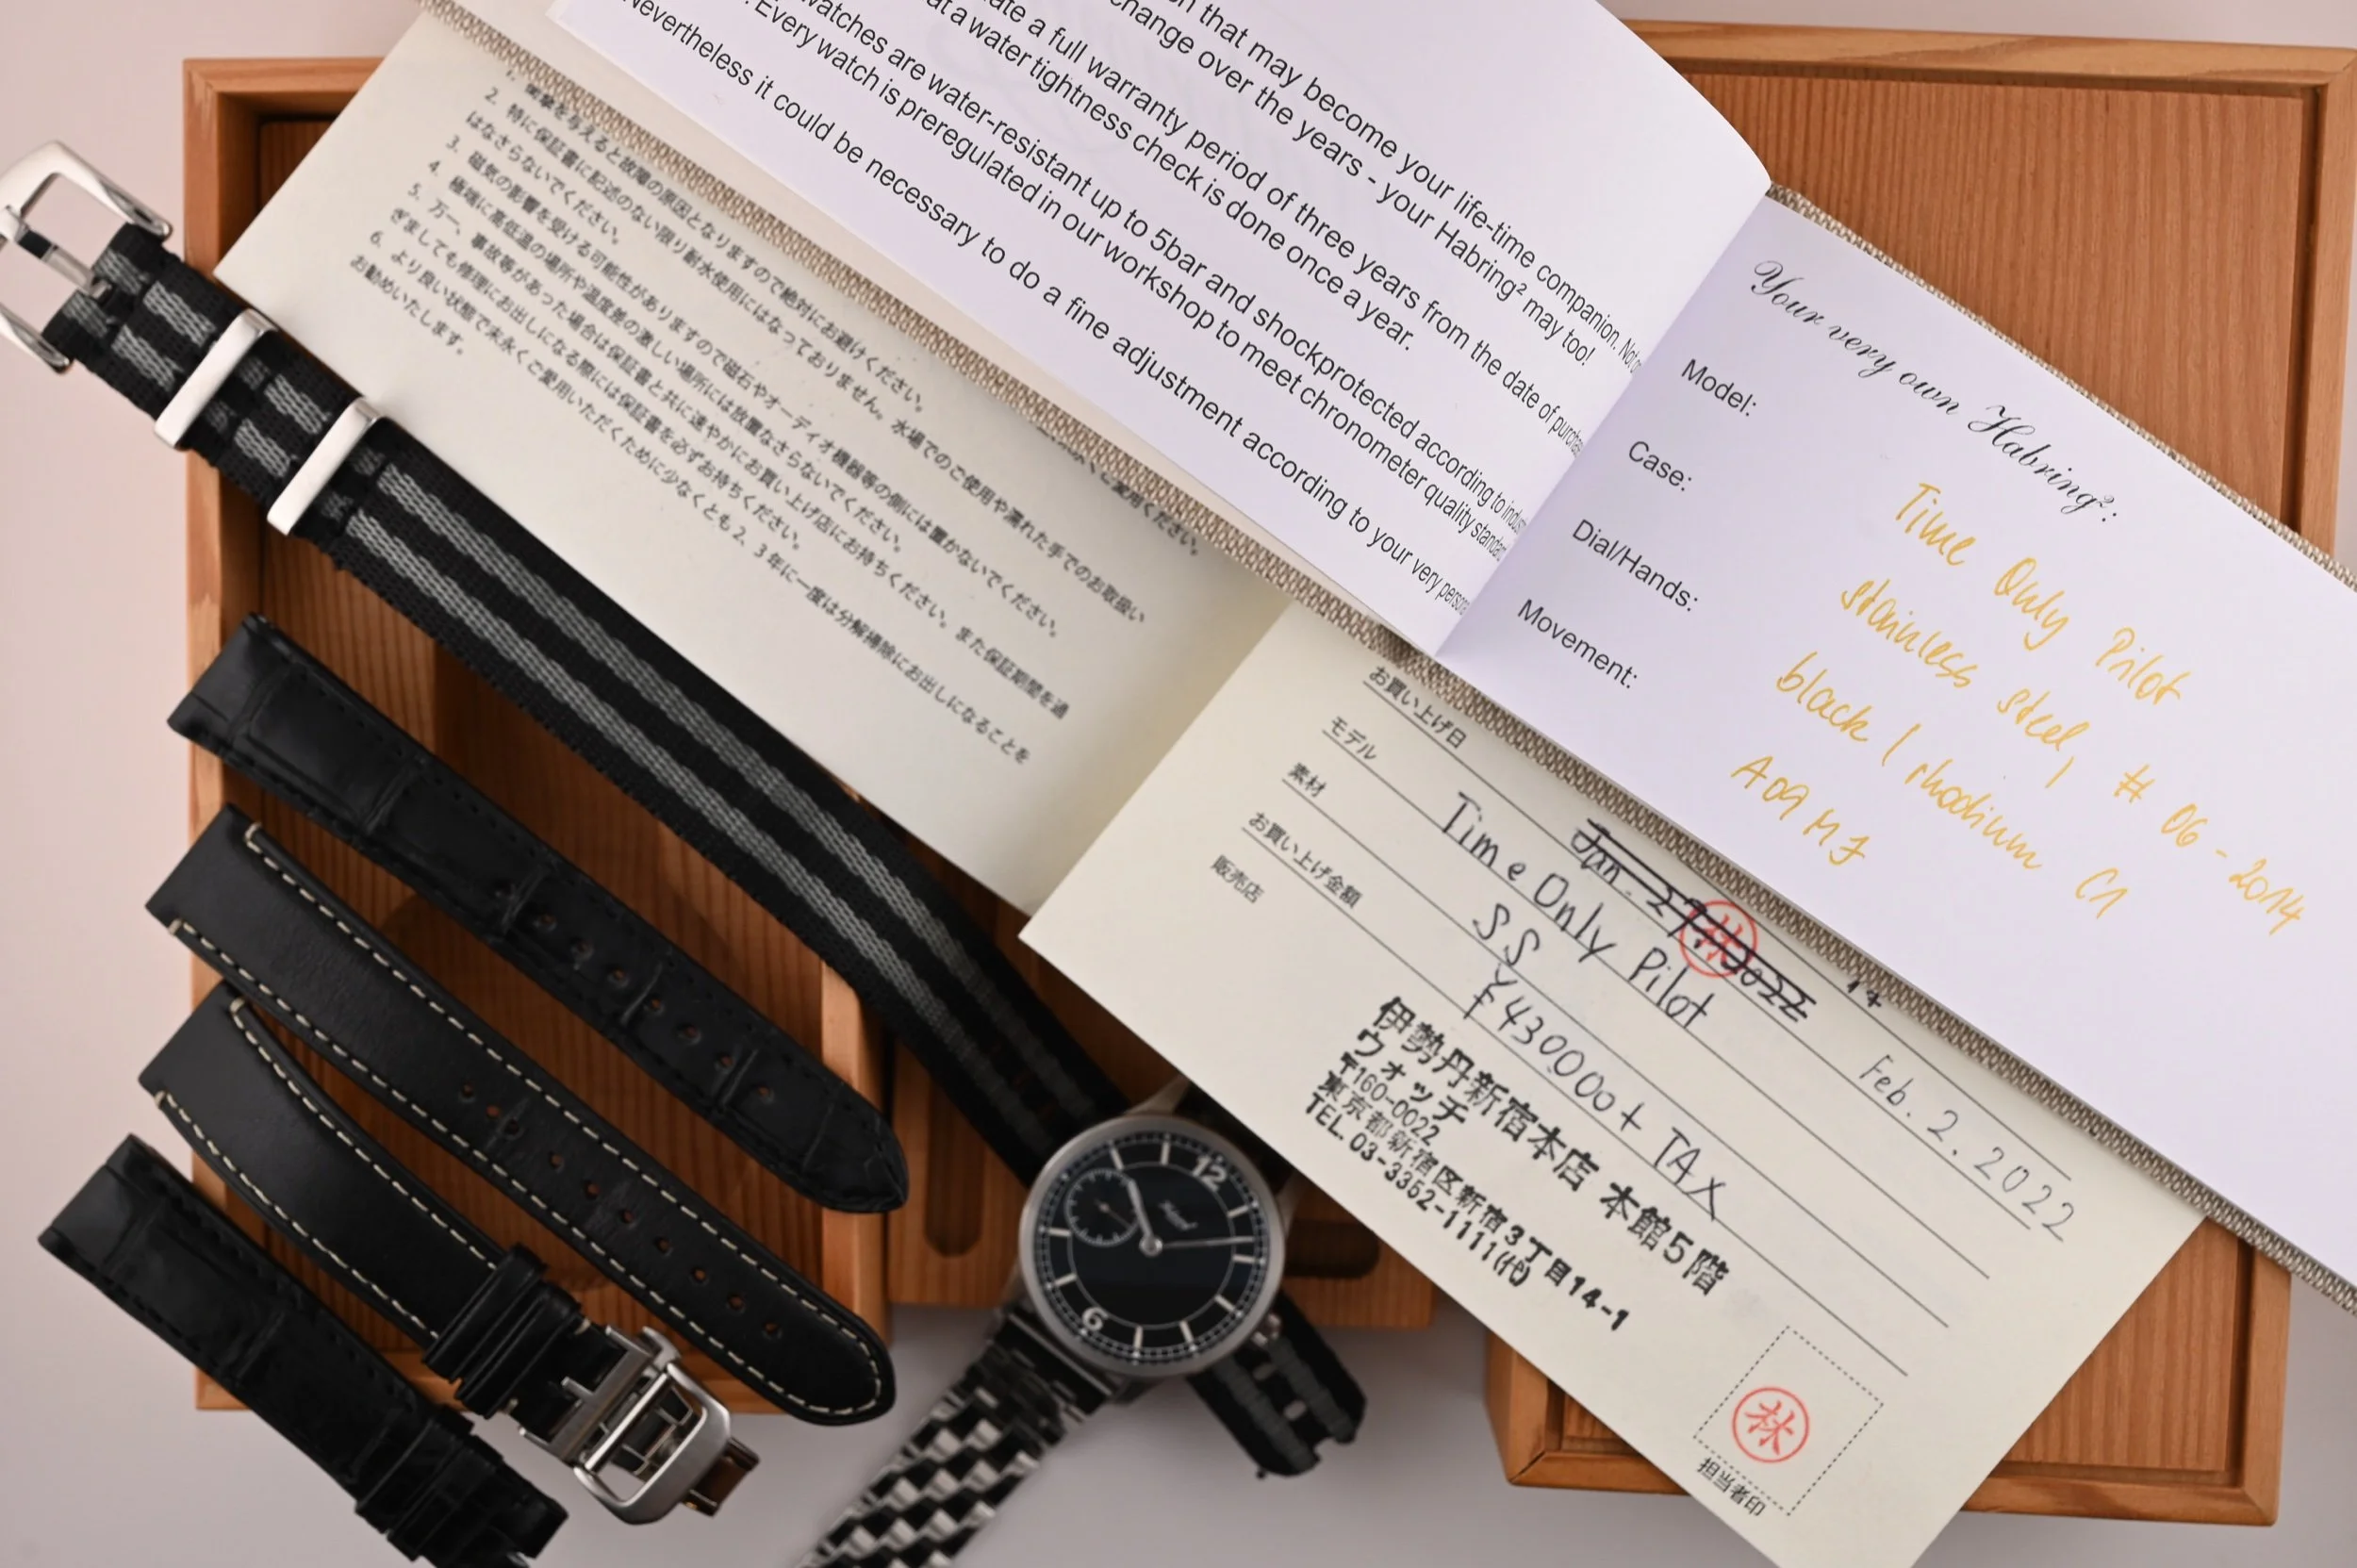 n that may become your life-time companion. Not
change over the years - your Habring² may too!
ate a full warranty period of three years from the date of purchase
at a water tightness check is done once a year.
watches are water-resistant up to 5bar and shockprotected according to
. Every watch is preregulated in our workshop to meet chronometer quality
Nevertheless it could be necessary to do a fine adjustment according to your very
Your very own Habring²:
Model: Time Only Pilot
Case: stainless steel, # 06-2014
Dial/Hands: black / rhodium C1
Movement: A09MJ
衝撃を与えると故障の原因となりますので絶対にお避けください。
2. 特に保証書に記述のない限り耐水使用にはなっておりません。水場でのご使用や濡れた手でのお取扱い
はなさらないでください。
3. 磁気の影響を受ける可能性がありますので磁石やオーディオ機器等の側には置かないでください。
4. 極端に高低温の場所や温度差の激しい場所には放置なさらないでください。
5. 万一、事故等があった場合は保証書と共に速やかにお買い上げ店にお持ちください。また保証期間を過
ぎましても修理にお出しになる際には保証書を必ずお持ちください。
6. より良い状態で末永くご愛用いただくために少なくとも2、3年に一度は分解掃除にお出しになることを
お勧めいたします。
ご愛用ください。
お買い上げ日 Jan. 29 2022 林 Feb. 2. 2022
モデル Time Only Pilot
素材 SS
お買い上げ金額 ¥430000+TAX
販売店
伊勢丹新宿本店 本館5階
ウォッチ
〒160-0022
東京都新宿区新宿3丁目14-1
TEL.03-3352-1111(代)
林
担当者印
12
6